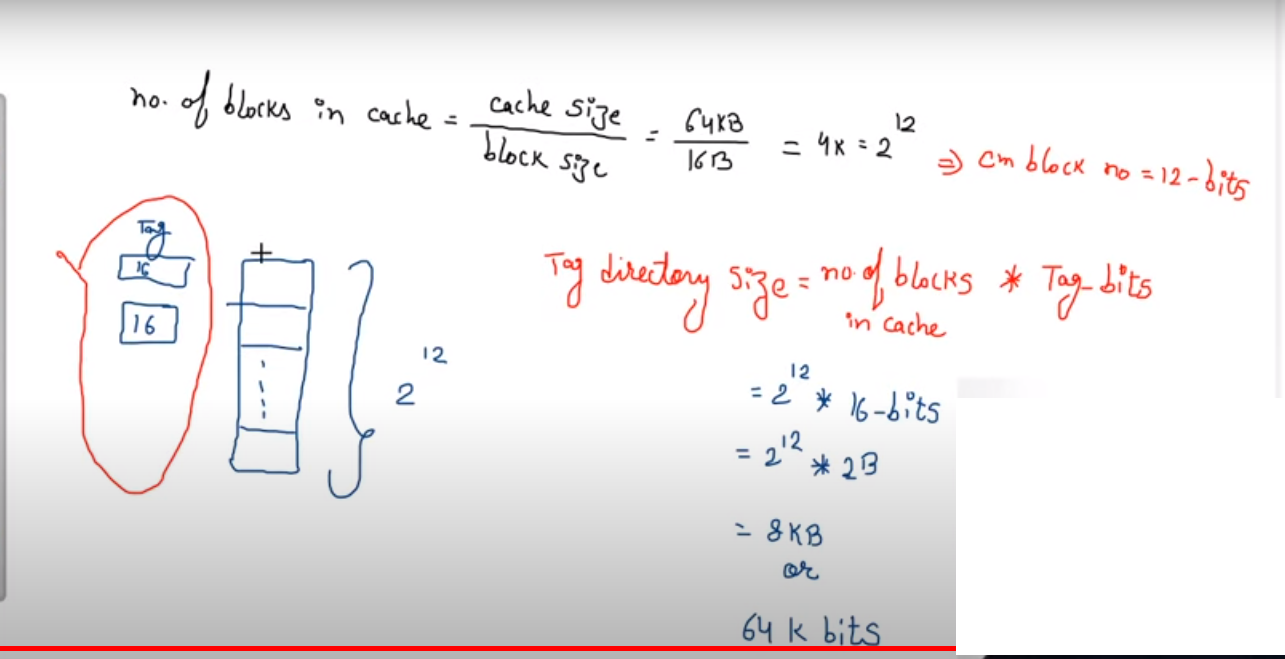 no. of blocks in cache = cache size / block size = 64KB / 16B = 4K = 2^12 ⇒ cm block no = 12-bits
Tag
16
16
2^12
Tag directory size = no. of blocks in cache * Tag-bits
= 2^12 * 16-bits
= 2^12 * 2B
= 8KB
or
64 K bits